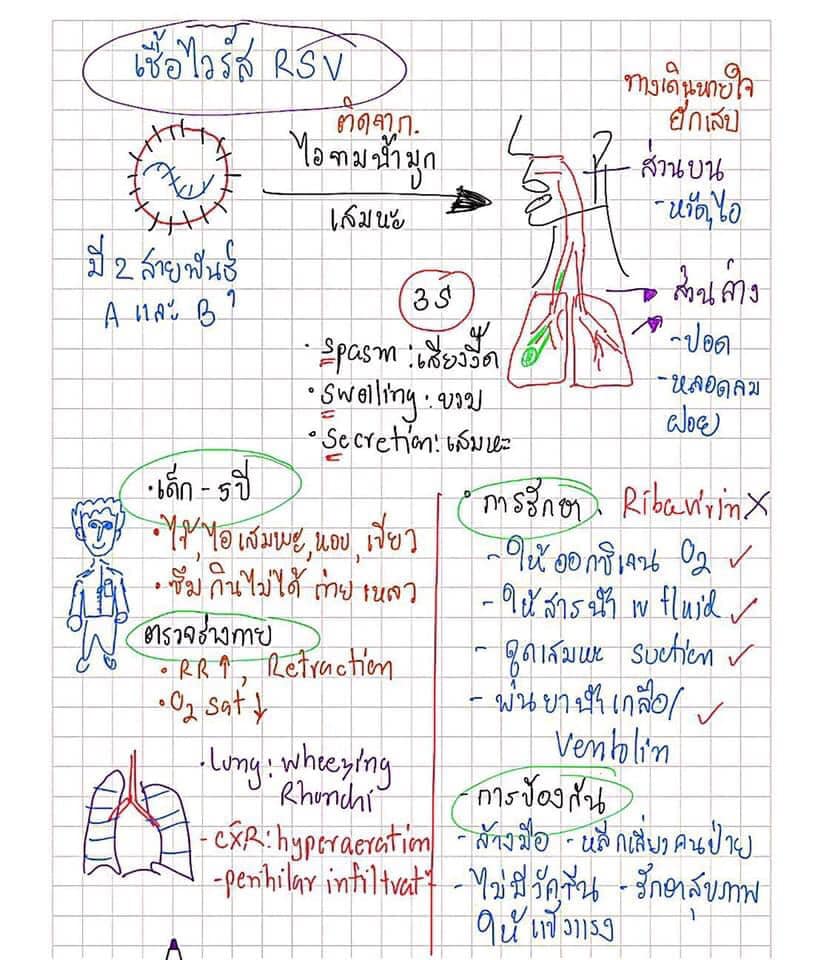 เชื้อไวรัส RSV
ติดจาก.
ไอจามน้ำมูก
เสมหะ
มี 2 สายพันธุ์
A และ B
ทางเดินหายใจ
อักเสบ
ส่วนบน
- หวัด,ไอ
ส่วนล่าง
- ปอด
- หลอดลม
ฝอย
3S
• Spasm : เสียงวี๊ด
• Swelling : บวม
• Secretion : เสมหะ
• เด็ก - 5 ปี
• ไข้, ไอเสมหะ, หอบ, เขียว
• ซึม กินไม่ได้ ถ่าย เหลว
ตรวจร่างกาย
• RR ↑, Retraction
• O2 sat ↓
• Lung : wheezing
Rhonchi
- CXR : hyperaeration
- perihilar infiltrate
• การรักษา. Ribavirin X
- ให้ออกซิเจน O2 ✓
- ให้สารน้ำ IV fluid ✓
- ดูดเสมหะ suction ✓
- พ่นยาน้ำเกลือ/ ✓
Ventolin
- การป้องกัน
- ล้างมือ - หลีกเลี่ยงคนป่วย
- ไม่มีวัคซีน - รักษาสุขภาพ
ให้แข็งแรง